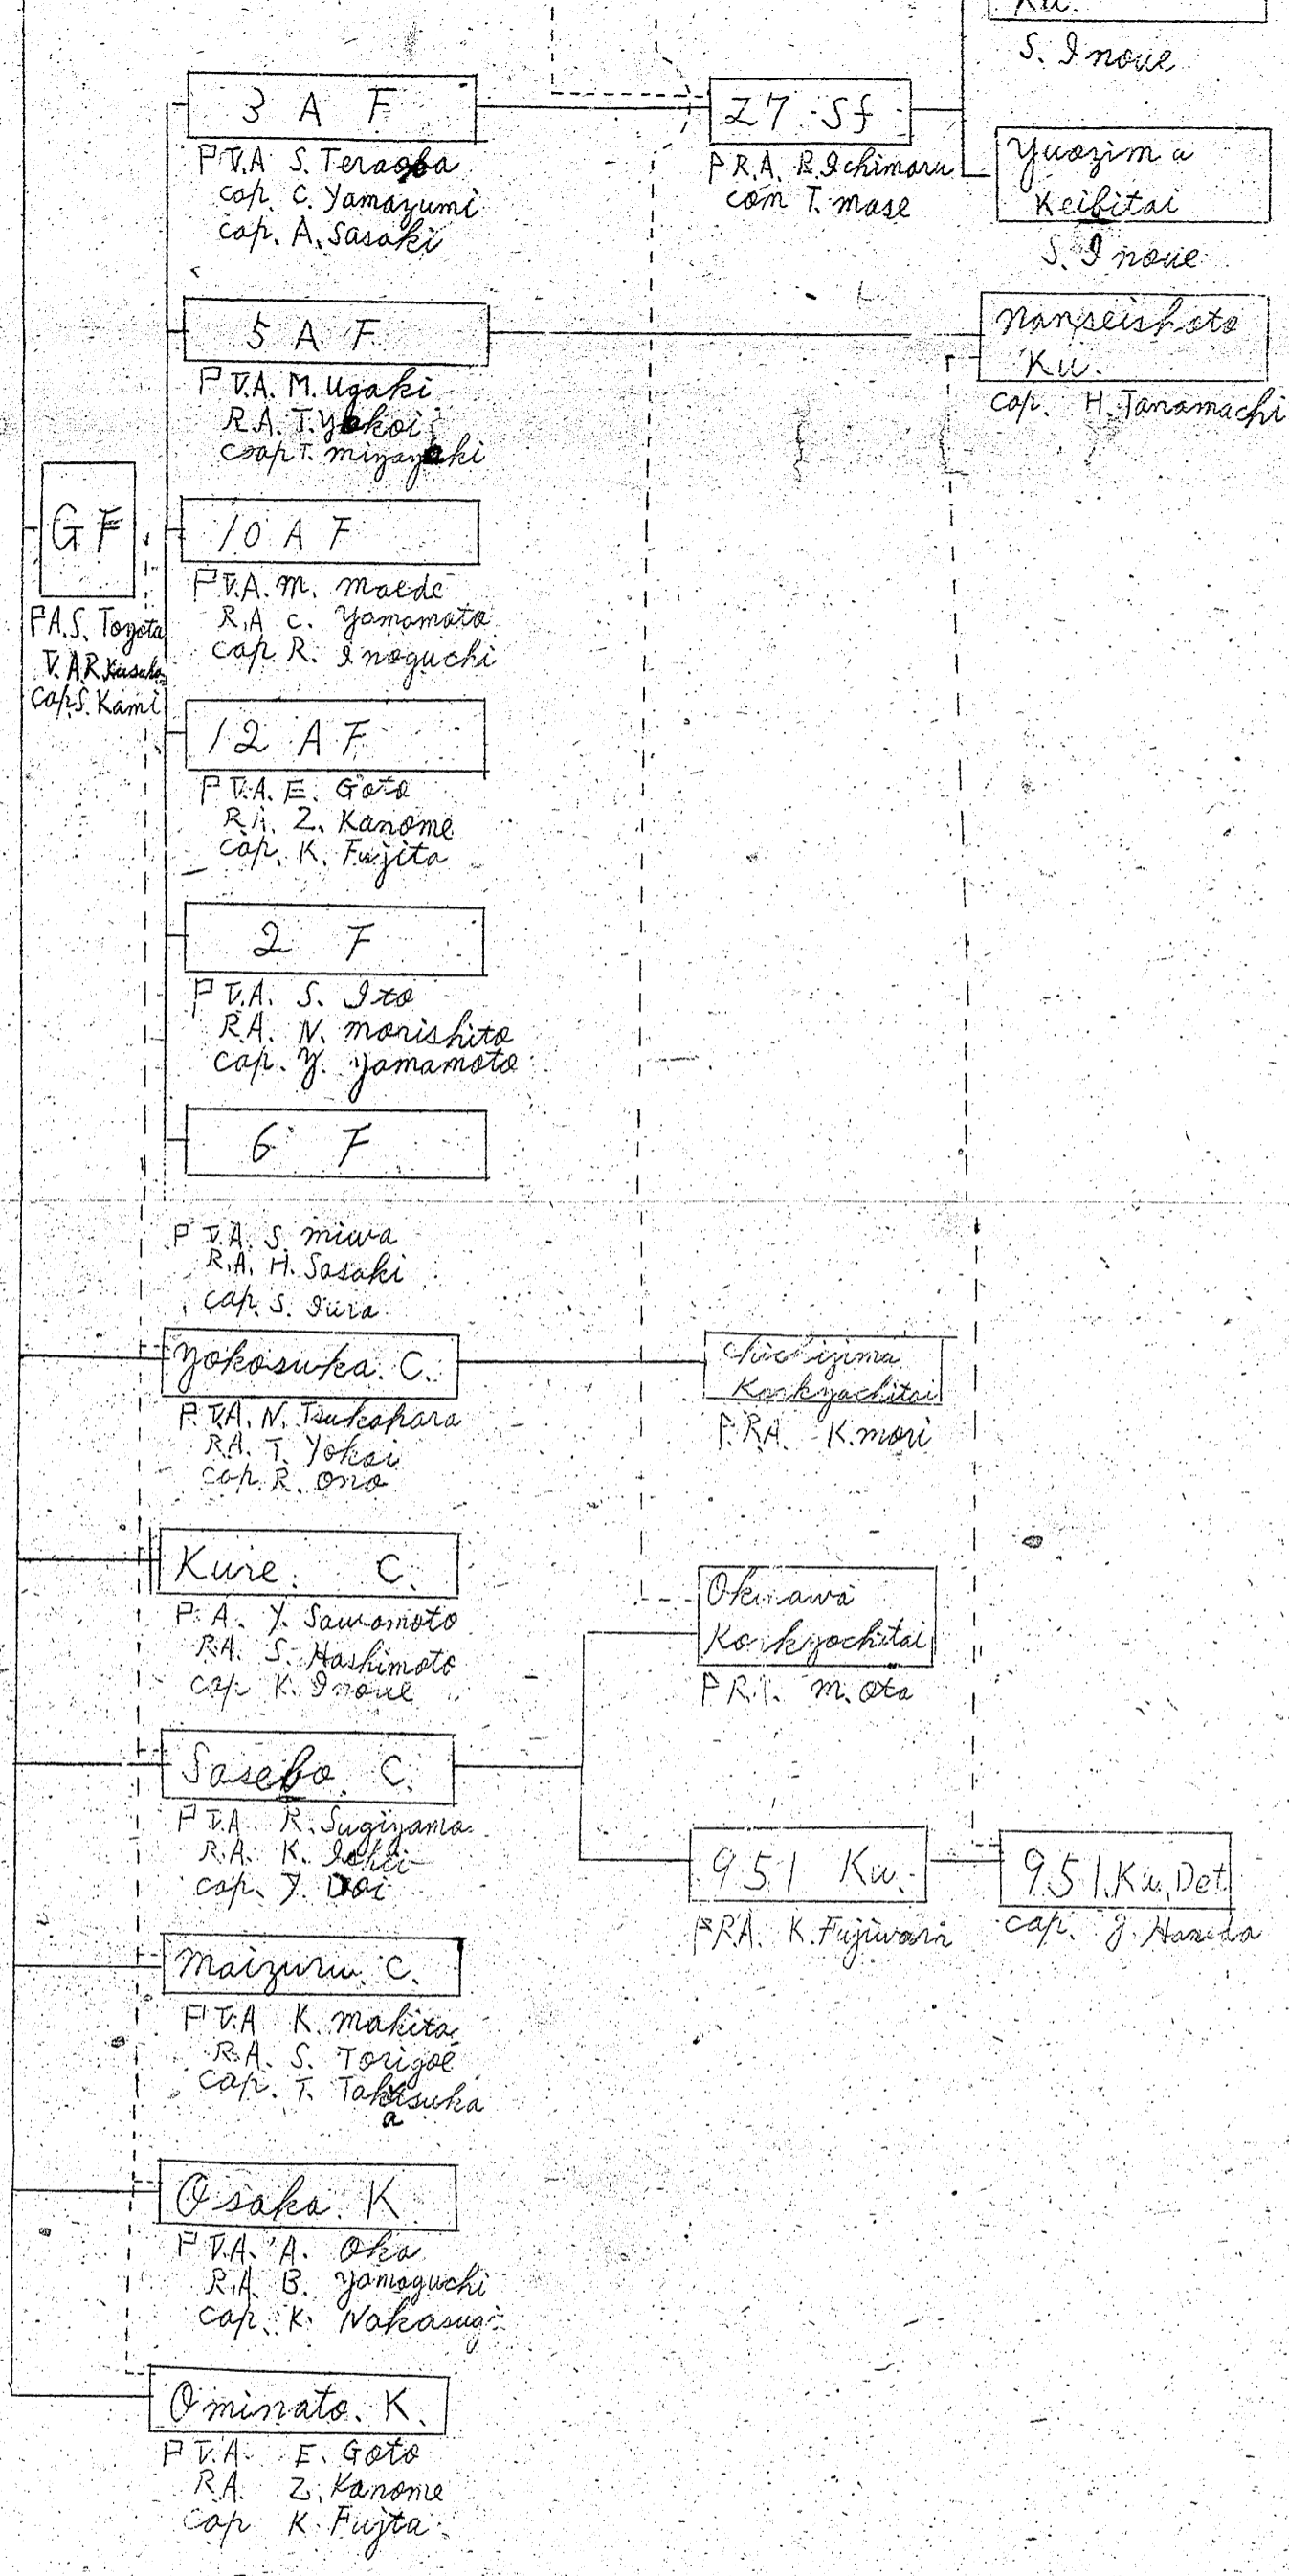 Ku.
S. Inoue
3 A F
P V.A S. Teraoka
cap. C. Yamazumi
cap. A. Sasaki
27 Sf
P R.A. R. Ichimaru
com T. mase
Yuozima
Keibitai
S. Inoue
5 A F
P V.A. M. Ugaki
R.A. T. Yokoi
cap T. miyazaki
Nanseishoto
Ku.
cap. H. Tanamachi
GF
P A. S. Toyota
V. A R. Kusaka
cap S. Kami
10 A F
P V.A. M. maede
R.A C. Yamamoto
cap. R. Inoguchi
12 A F
P V.A. E. Goto
R.A. Z. Kanome
cap. K. Fujita
2 F
P V.A. S. Ito
R.A. N. morishita
cap. Y. Yamamoto
6 F
P V.A. S. miwa
R.A. H. Sasaki
cap. S. Iura
Yokosuka. C.
P. V.A. N. Tsukahara
R.A. T. Yokoi
cap. R. Ono
Chichizima
Konkyochitai
P. R.A. K. mori
Kure. C.
P. A. Y. Sawamoto
R.A. S. Hashimoto
cap K. Inoue
Okinawa
Konkyochitai
P R.A. M. Ota
Sasebo. C.
P V.A R. Sugiyama
R.A. K. Ishii
cap. Y. Doi
951 Ku.
P R.A. K. Fujiwara
951. Ku. Det
cap. J. Haneda
Maizuru. C.
P V.A K. Makita
R.A. S. Torigoe
cap. T. Takasuka
a
Osaka. K
P V.A. A. Oka
R.A. B. Yamaguchi
cap. K. Nakasugi
Ominato. K.
P V.A. E. Goto
R.A. Z. Kanome
cap K. Fujta